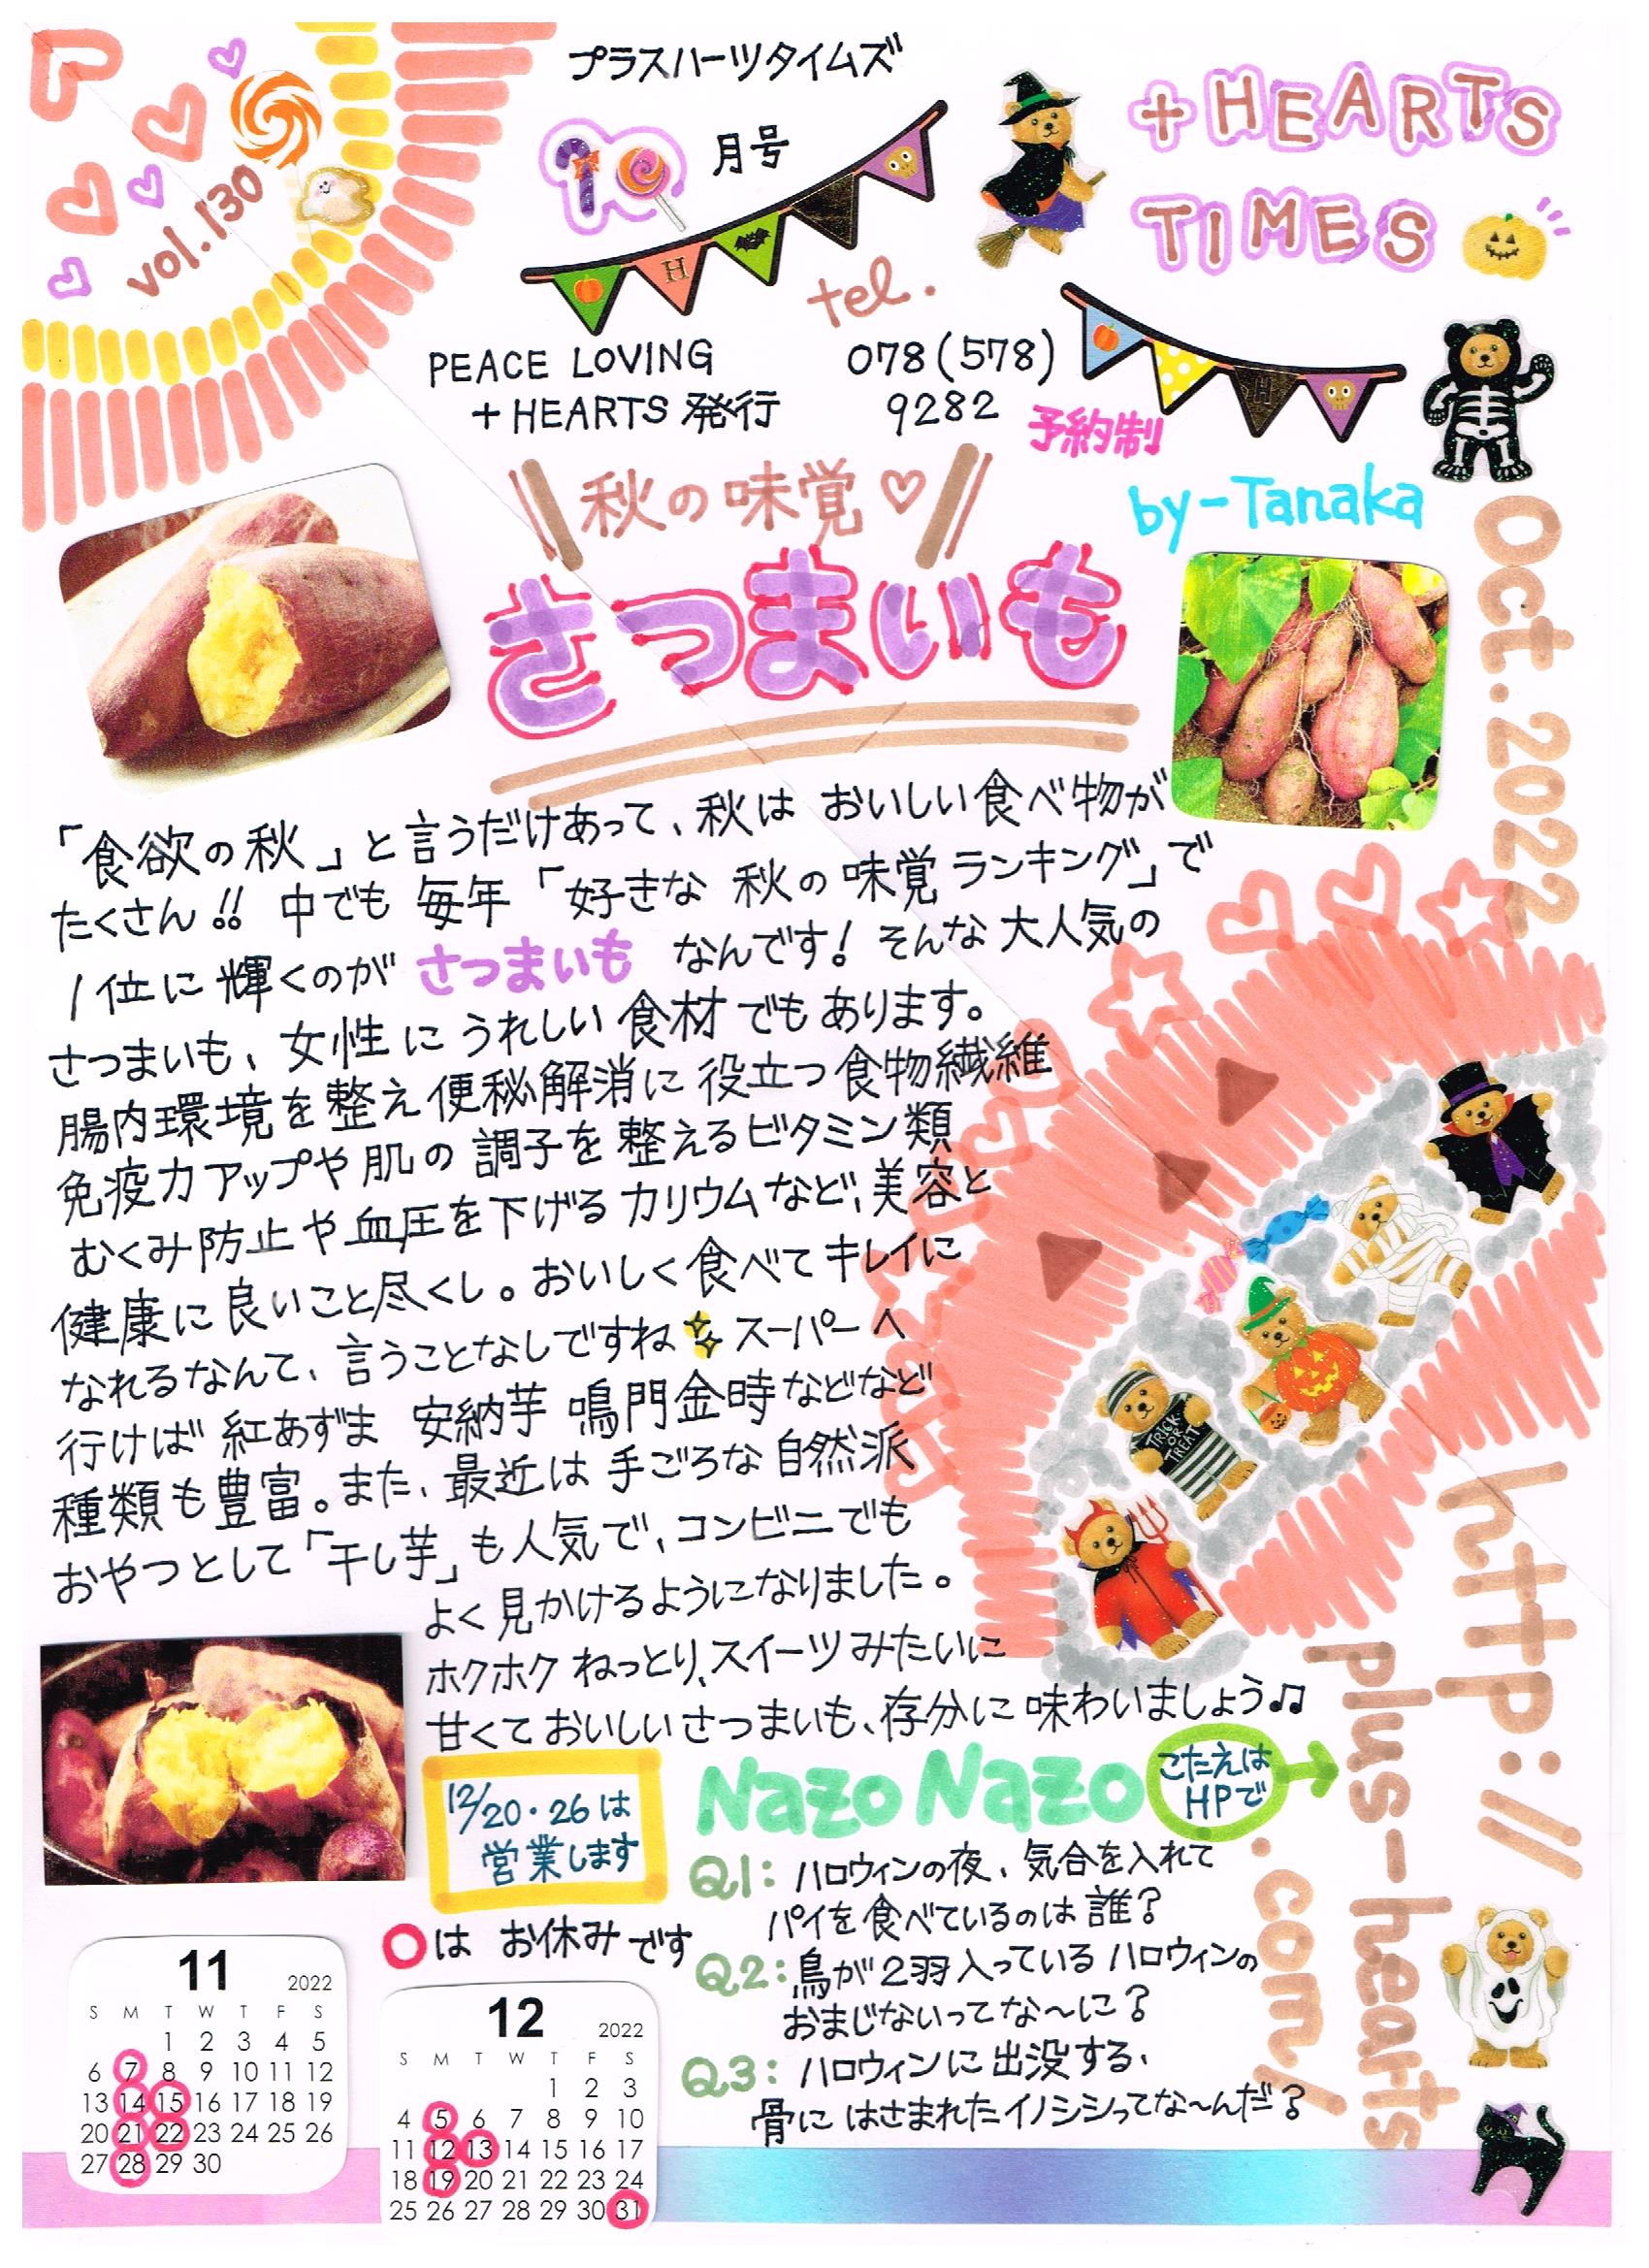 プラスハーツタイムズ
10月号
+HEARTS
TIMES
vol.130
H
H
tel.
PEACE LOVING
+HEARTS 発行
078(578)
9282
予約制
by-Tanaka
Oct.2022
秋の味覚♡
さつまいも
「食欲の秋」と言うだけあって、秋は おいしい食べ物が
たくさん!! 中でも 毎年 「好きな 秋の 味覚 ランキング」で
1位に輝くのが さつまいも なんです! そんな 大人気の
さつまいも、女性に うれしい 食材でも あります。
腸内環境を整え便秘解消に役立つ食物繊維
免疫力アップや肌の調子を整えるビタミン類
むくみ防止や血圧を下げる カリウムなど、美容と
健康に良いこと尽くし。おいしく食べてキレイに
なれるなんて、言うことなしですね スーパーへ
行けば 紅あずま 安納芋 鳴門金時などなど
種類も豊富。また、最近は手ごろな自然派
おやつとして「干し芋」も人気で、コンビニでも
よく見かけるようになりました。
ホクホク ねっとり、スイーツみたいに
甘くておいしいさつまいも、存分に味わいましょう♫
TRICK
OR
TREAT
http://
plus-hearts
.com/
12/20・26は
営業します
○は お休みです
Nazo Nazo
こたえは
HPで
Q1: ハロウィンの夜、気合を入れて
パイを食べているのは誰?
Q2: 鳥が2羽入っている ハロウィンの
おまじないってな〜に?
Q3: ハロウィンに出没する、
骨に はさまれたイノシシってな〜んだ?
11 2022
S M T W T F S
1 2 3 4 5
6 7 8 9 10 11 12
13 14 15 16 17 18 19
20 21 22 23 24 25 26
27 28 29 30
12 2022
S M T W T F S
1 2 3
4 5 6 7 8 9 10
11 12 13 14 15 16 17
18 19 20 21 22 23 24
25 26 27 28 29 30 31